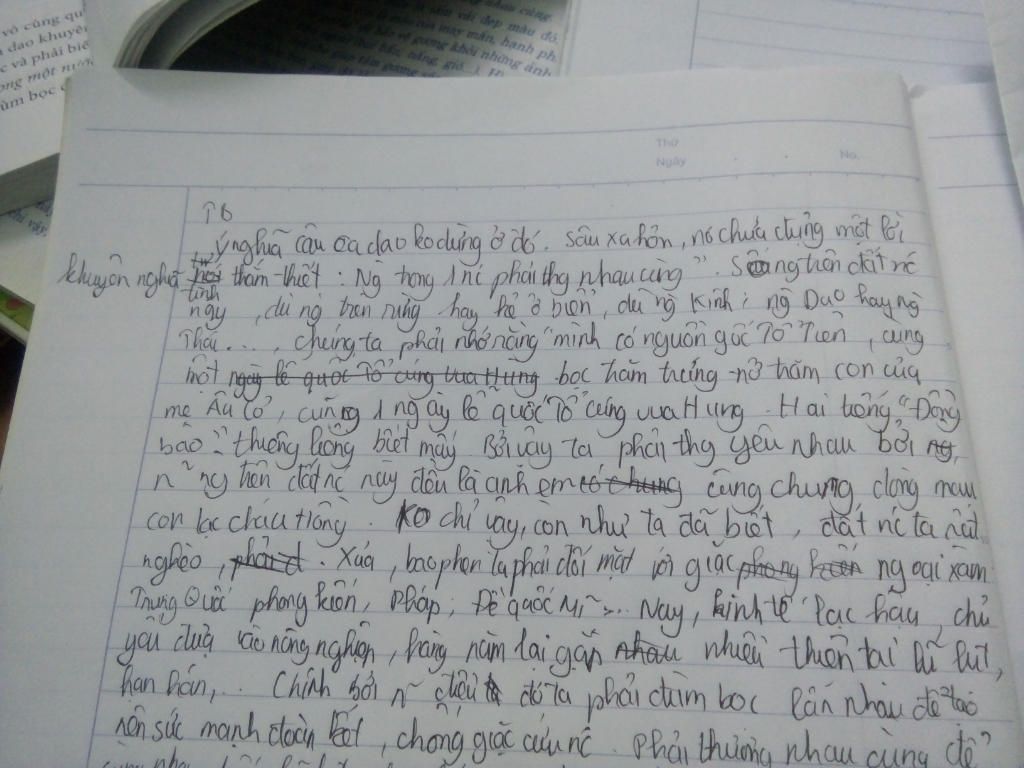 vô cùng qu
dao khuyê
c và phải biế
ong một nướ
ùm bọc
Thứ
Ngày
No.
ý nghĩa câu ca dao ko dừng ở đó. Sâu xa hơn, nó chứa đựng một lời
khuyên nghĩ tình thắm thiết: Ng trong 1 nc phải thg nhau cùng". Sống trên đất nc
này, dù ng trên rừng hay kẻ ở biển, dù ng Kinh, ng Dao hay ng
Thái..., chúng ta phải nhớ rằng mình có nguồn gốc Tổ Tiên, cùng
một ngày lễ quốc Tổ cúng vua Hùng bọc trăm trứng nở trăm con của
mẹ Âu Cơ, cùng 1 ngày lễ quốc Tổ cúng vua Hùng. Hai tiếng "Đồng
bào" thiêng liêng biết mấy. Bởi vậy ta phải thg yêu nhau bởi ng
n~ ng trên đất nc này đều là anh em có chung cùng chung dòng máu
con lạc cháu Hồng. Ko chỉ vậy, còn như ta đã biết, đất nc ta rất
nghèo, phải đ. Xưa, bao phen ta phải đối mặt với giặc phong kiến ngoại xâm
Trung Quốc phong kiến, Pháp, Đế quốc Mĩ... Nay, kinh tế lạc hậu, chủ
yếu dựa vào nông nghiệp, hàng năm lại gặp nhau nhiều thiên tai lũ lụt,
hạn hán,... Chính bởi n~ điều đó ta phải đùm bọc lẫn nhau để tạo
nên sức mạnh đoàn kết, chống giặc cứu nc. Phải thương nhau cùng để